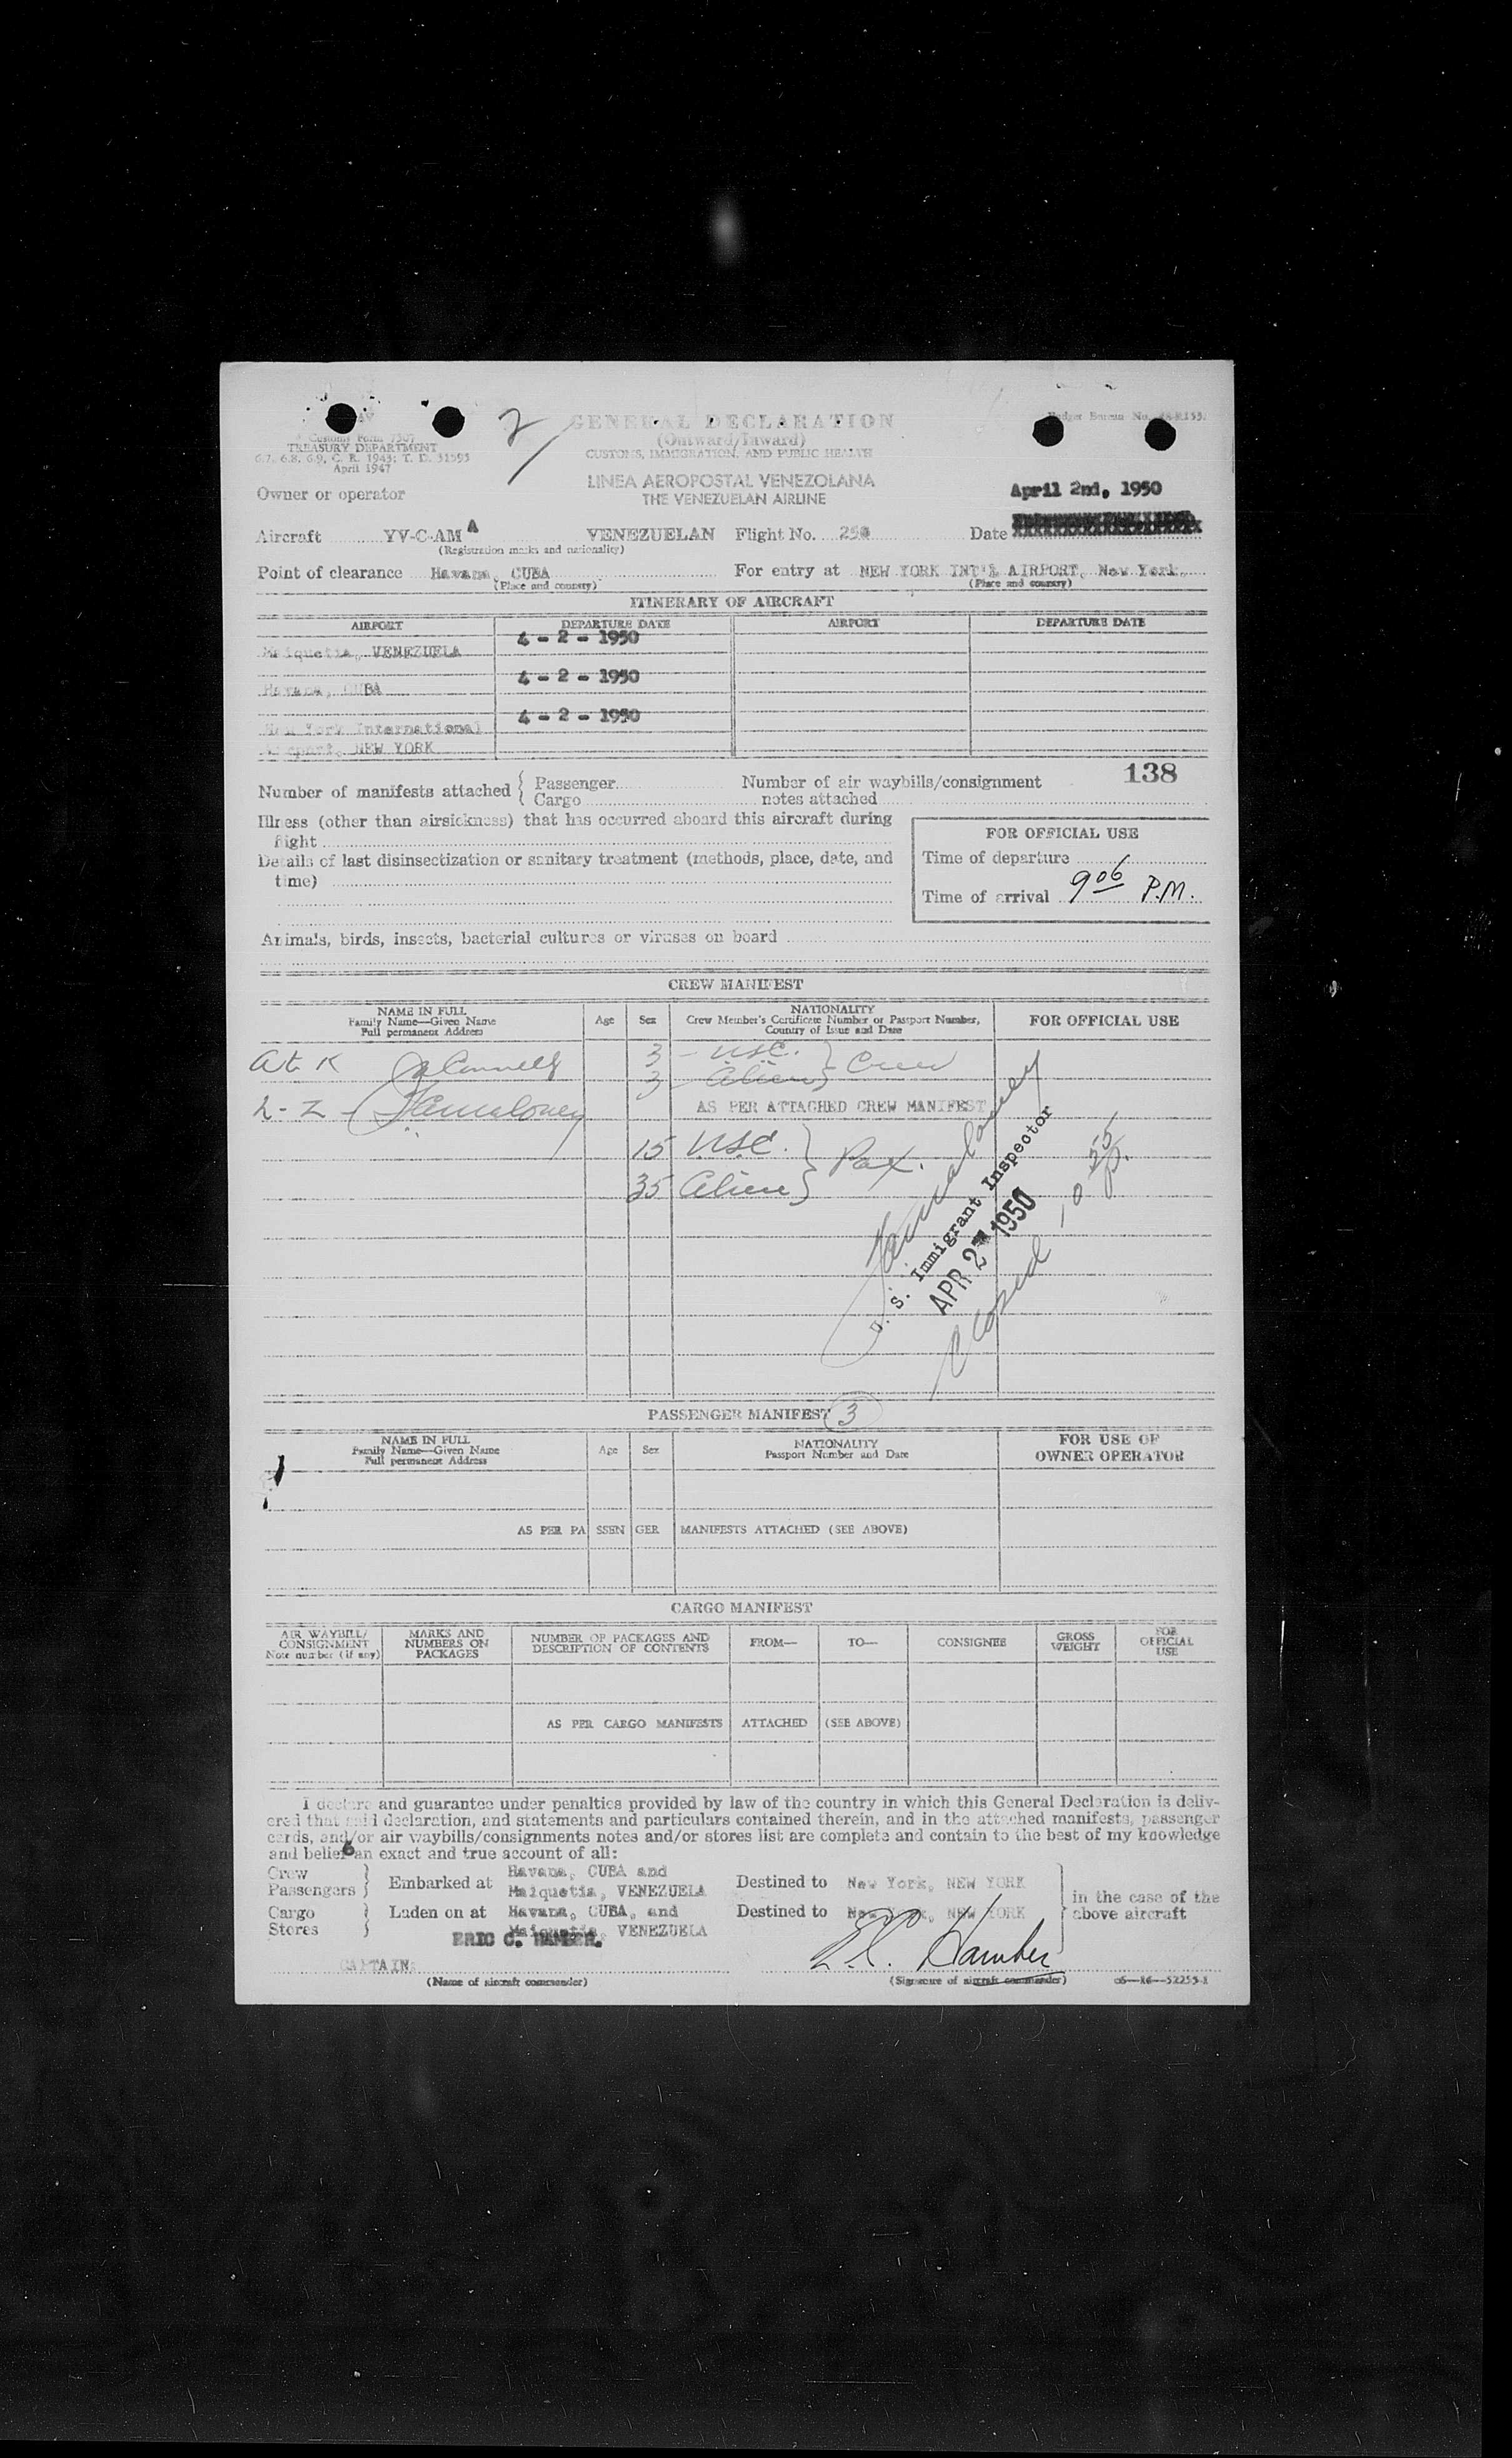 2/
GENERAL DECLARATION
(Outward/Inward)
CUSTOMS, IMMIGRATION, AND PUBLIC HEALTH
Customs Form 7507
TREASURY DEPARTMENT
6.7, 6.8, 6.9, C. R. 1943; T. D. 51595
April 1947
Budget Bureau No.
LINEA AEROPOSTAL VENEZOLANA
THE VENEZUELAN AIRLINE
Owner or operator
April 2nd, 1950
Aircraft YV-C-AMA VENEZUELAN Flight No. Date
(Registration marks and nationality)
Point of clearance Havana, CUBA For entry at NEW YORK INT'L AIRPORT, New York.
(Place and country) (Place and country)
ITINERARY OF AIRCRAFT
AIRPORT DEPARTURE DATE AIRPORT DEPARTURE DATE
4 - 2 - 1950
Maiquetia, VENEZUELA
4 - 2 - 1950
Havana, CUBA
4 - 2 - 1950
New York International
Airport, NEW YORK
138
Number of manifests attached { Passenger Number of air waybills/consignment
Cargo notes attached
Illness (other than airsickness) that has occurred aboard this aircraft during
flight
FOR OFFICIAL USE
Details of last disinsectization or sanitary treatment (methods, place, date, and
time)
Time of departure
Time of arrival 9 06 P.M.
Animals, birds, insects, bacterial cultures or viruses on board
CREW MANIFEST
NAME IN FULL
Family Name—Given Name
Full permanent Address
Age Sex
NATIONALITY
Crew Member's Certificate Number or Passport Number,
Country of Issue and Date
FOR OFFICIAL USE
A to K 3 - USC. } Crew
3 - Alien }
L-Z - AS PER ATTACHED CREW MANIFEST
15 USC. } Pax.
35 Alien }
U. S. Immigrant Inspector
APR 2 1950
Closed 10 55 P.
PASSENGER MANIFEST 3
NAME IN FULL
Family Name—Given Name
Full permanent Address
Age Sex
NATIONALITY
Passport Number and Date
FOR USE OF
OWNER OPERATOR
AS PER PA SSEN GER MANIFESTS ATTACHED (SEE ABOVE)
CARGO MANIFEST
AIR WAYBILL/
CONSIGNMENT
Note number (if any)
MARKS AND
NUMBERS ON
PACKAGES
NUMBER OF PACKAGES AND
DESCRIPTION OF CONTENTS
FROM— TO— CONSIGNEE
GROSS
WEIGHT
FOR
OFFICIAL
USE
AS PER CARGO MANIFESTS ATTACHED (SEE ABOVE)
I declare and guarantee under penalties provided by law of the country in which this General Declaration is deliv-
ered that said declaration, and statements and particulars contained therein, and in the attached manifests, passenger
cards, and/or air waybills/consignments notes and/or stores list are complete and contain to the best of my knowledge
and belief an exact and true account of all:
Crew } Embarked at Havana, CUBA and Destined to New York, NEW YORK
Passengers } Maiquetia, VENEZUELA
in the case of the
above aircraft
Cargo } Laden on at Havana, CUBA, and Destined to New York, NEW YORK
Stores } Maiquetia, VENEZUELA
ERIC C. HAMBER.
CAPTAIN: E.C. Hamber
(Name of aircraft commander) (Signature of aircraft commander) 16—52255-1